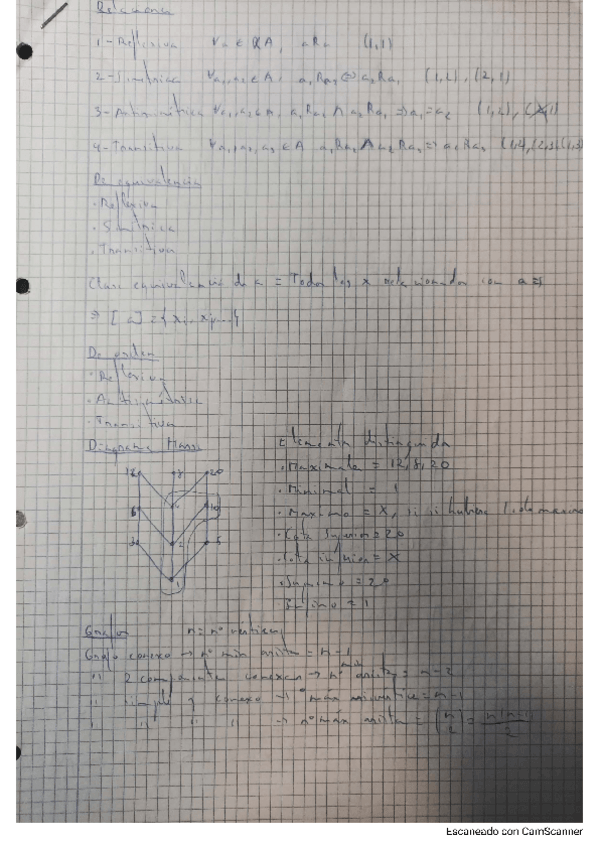 Relaciones
1-Reflexiva ∀a ∈ A, aRa (1,1)
2-Simétrica ∀a₁,a₂ ∈ A, a₁Ra₂ ⇔ a₂Ra₁ (1,2), (2,1)
3-Antisimétrica ∀a₁,a₂ ∈ A, a₁Ra₂ ∧ a₂Ra₁ ⇒ a₁=a₂ (1,2),
4-Transitiva ∀a₁,a₂,a₃ ∈ A a₁Ra₂ ∧ a₂Ra₃ ⇒
De equivalencia
·Reflexiva
·Simétrica
·Transitiva
Clase equivalencia de a = Todos los x relacionados con a ⇒
⇒ [a]={xi, xj,...}
De orden
·Reflexiva
·Antisimétrica
·Transitiva
Diagrama Hasse
Elementos distinguidos
·Maximales = 12,8,20
·Minimal = 1
·Maximo = X, si si hubiera 1
·Cota superior = 20
·Cota inferior = X
·Supremo = 20
·Infimo = 1
12 8 20
6 4 10
3 2 5
1
Grafos n = nº vértices
Grafo conexo → nº min aristas = n-1
" 2 componentes conexas → nº min aristas = n-2
" simple y conexo → nº máx = n-1
" " " " → nº máx aristas = (n 2) = n(n-1)/2
Escaneado con CamScanner